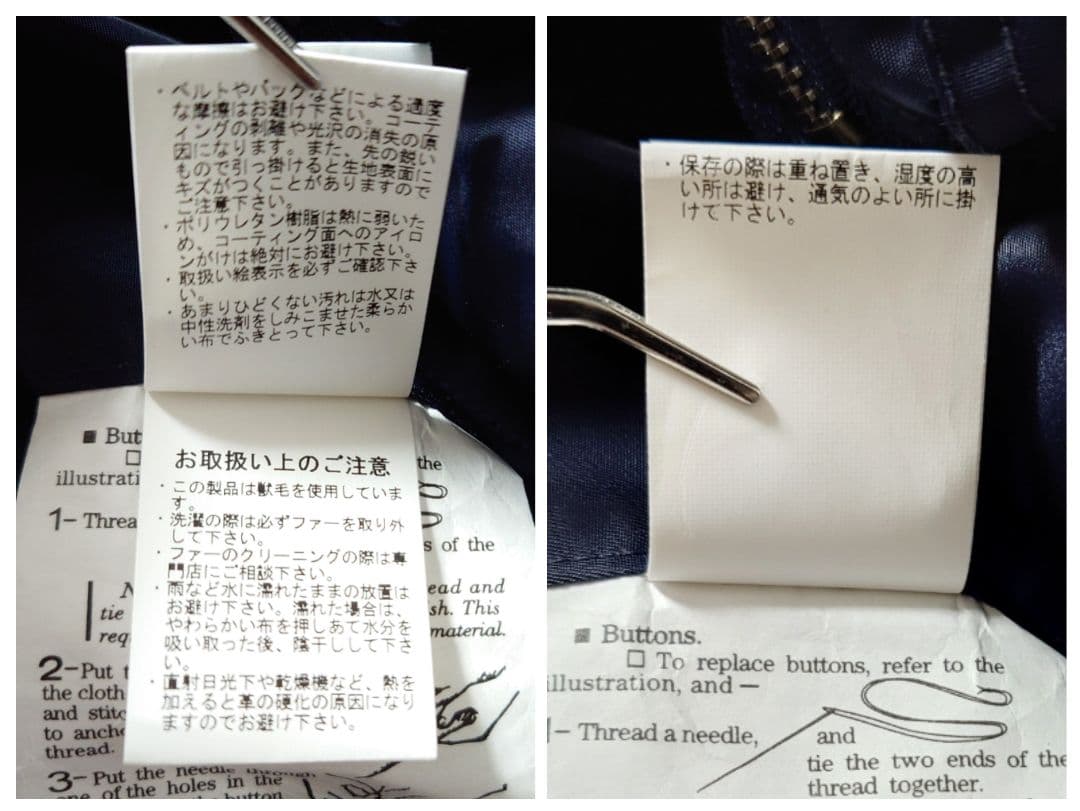 ・ベルトやバッグなどによる過度
な摩擦はお避け下さい。コーテ
ィングの剥離や光沢の消失の原
因になります。また、先の鋭い
もので引っ掛けると生地表面に
キズがつくことがありますので
ご注意下さい。
・ポリウレタン樹脂は熱に弱いた
め、コーティング面へのアイロ
ンがけは絶対にお避け下さい。
・取扱い絵表示を必ずご確認下さ
い。
・あまりひどくない汚れは水又は
中性洗剤をしみこませた柔らか
い布でふきとって下さい。
お取扱い上のご注意
・この製品は獣毛を使用していま
す。
・洗濯の際は必ずファーを取り外
して下さい。
・ファーのクリーニングの際は専
門店にご相談下さい。
・雨など水に濡れたままの放置は
お避け下さい。濡れた場合は、
やわらかい布を押しあて水分を
吸い取った後、陰干しして下さ
い。
・直射日光下や乾燥機など、熱を
加えると革の硬化の原因になり
ますのでお避け下さい。
■ But
□ the
illustrati
1- Threa
s of the
N ead and
tie sh. This
req material.
2-Put t
the cloth
and stitc
to ancho
thread.
3- Put the needle through
one of the holes in the
the button
・保存の際は重ね置き、湿度の高
い所は避け、通気のよい所に掛
けて下さい。
■ Buttons.
□ To replace buttons, refer to the
illustration, and —
- Thread a needle, and
tie the two ends of the
thread together.